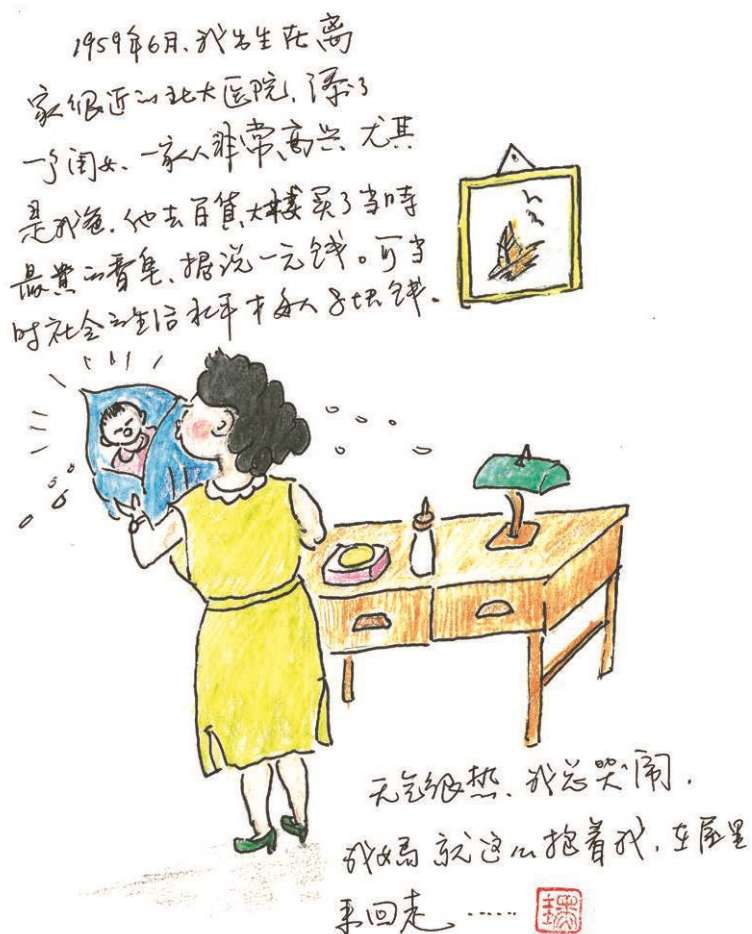 1959年6月、我出生在离
家很近的北大医院，添了
一个闺女、一家人非常高兴 尤其
是我爸，他去百货大楼买了当时
最贵的香皂、据说一元钱。可当
时社会的生活水平才每人8块钱。
天气很热、我总哭闹，
我妈就这么抱着我，在屋里
来回走……